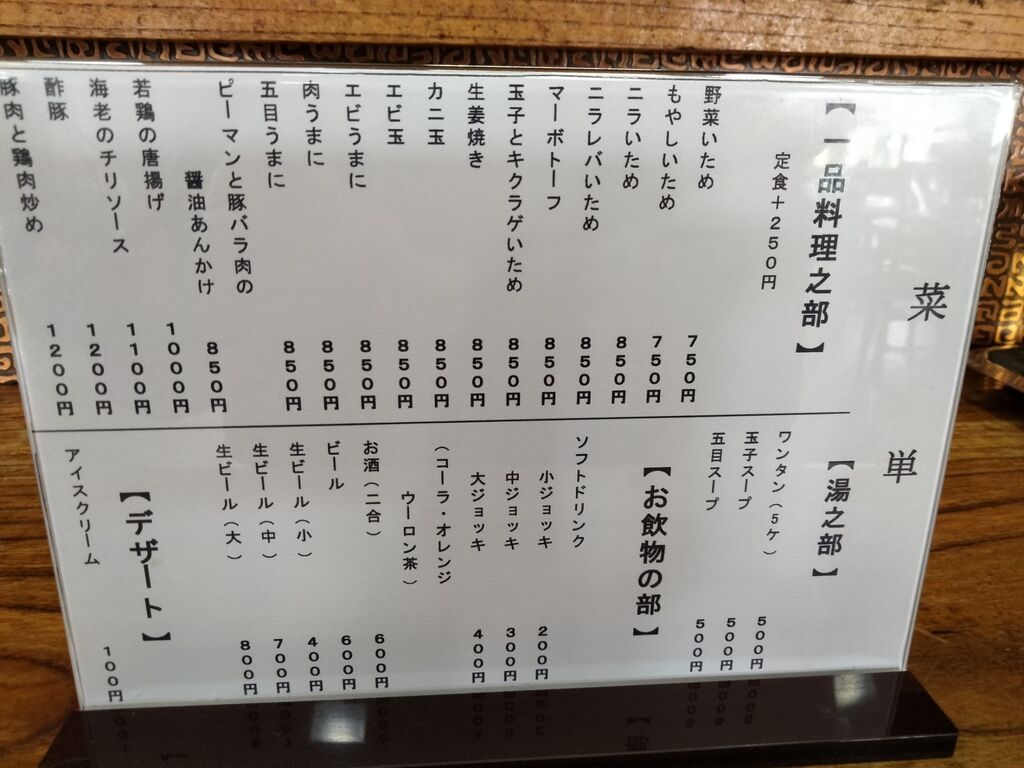 菜単
【一品料理之部】
定食+250円
野菜いため 750円
もやしいため 750円
ニラいため 850円
ニラレバいため 850円
マーボトーフ 850円
玉子とキクラゲいため 850円
生姜焼き 850円
カニ玉 850円
エビ玉 850円
エビうまに 850円
肉うまに 850円
五目うまに 850円
ピーマンと豚バラ肉の
醤油あんかけ 850円
若鶏の唐揚げ 1000円
海老のチリソース 1100円
酢豚 1200円
豚肉と鶏肉炒め 1200円
【湯之部】
ワンタン(5ケ) 500円
玉子スープ 500円
五目スープ 500円
【お飲物の部】
ソフトドリンク
小ジョッキ 200円
中ジョッキ 300円
大ジョッキ 400円
(コーラ・オレンジ
ウーロン茶)
お酒(二合) 600円
ビール 600円
生ビール(小) 400円
生ビール(中) 700円
生ビール(大) 800円
【デザート】
アイスクリーム 100円